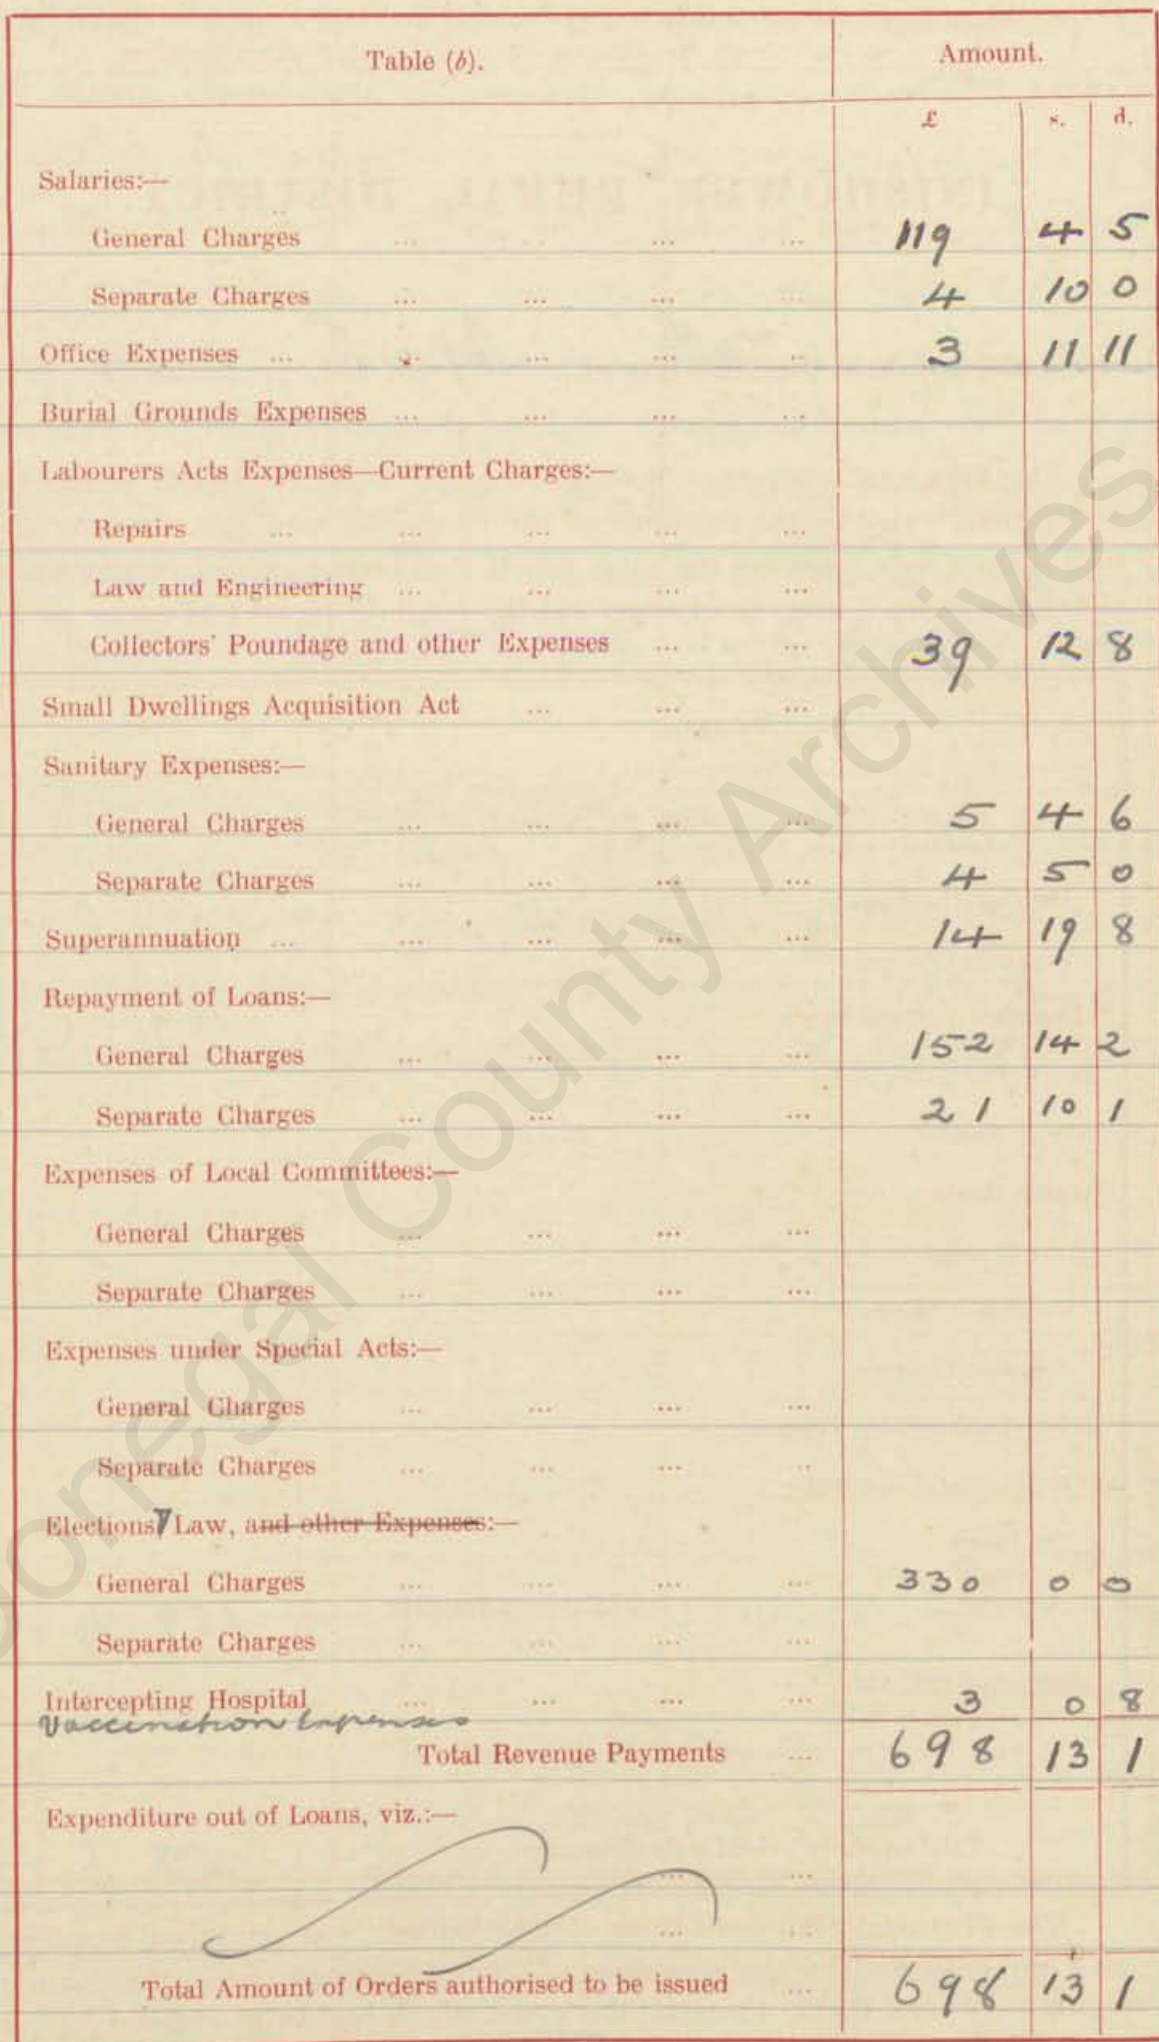 Table (b). Amount.
£ s. d.
Salaries:—
General Charges ... ... ... ... 119 4 5
Separate Charges ... ... ... ... 4 10 0
Office Expenses ... ... ... ... ... 3 11 11
Burial Grounds Expenses ... ... ... ...
Labourers Acts Expenses—Current Charges:—
Repairs ... ... ... ... ...
Law and Engineering ... ... ... ...
Collectors' Poundage and other Expenses ... ... 39 12 8
Small Dwellings Acquisition Act ... ... ...
Sanitary Expenses:—
General Charges ... ... ... ... 5 4 6
Separate Charges ... ... ... ... 4 5 0
Superannuation ... ... ... ... ... 14 19 8
Repayment of Loans:—
General Charges ... ... ... ... 152 14 2
Separate Charges ... ... ... ... 21 10 1
Expenses of Local Committees:—
General Charges ... ... ... ...
Separate Charges ... ... ... ...
Expenses under Special Acts:—
General Charges ... ... ... ...
Separate Charges ... ... ... ...
Elections, Law, and other Expenses:—
General Charges ... ... ... ... 330 0 0
Separate Charges ... ... ... ...
Intercepting Hospital ... ... ... ... 3 0 8
Vaccination Expenses
Total Revenue Payments ... 698 13 1
Expenditure out of Loans, viz.:—
... ...
... ...
Total Amount of Orders authorised to be issued ... 698 13 1
Donegal County Archives